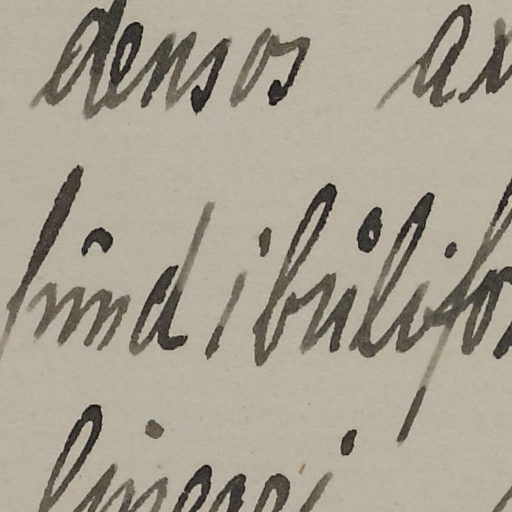 densos ax
fundibulifo
lineari